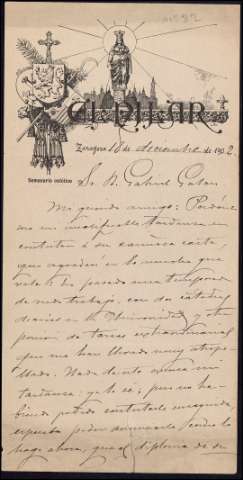 EL PILAR
Semanario católico
Zaragoza 18 de diciembre de 1902.
Sr. D. Gabriel Galan
Mi querido amigo: Perdóne
me mi inescusable tardanza en
contestar á su cariñosa carta,
que agradecí en lo mucho que
vale y he pasado una temporada
de mucho trabajo, con dos cátedras
diarias en la Universidad y otra
porción de tareas extraordinarias
que me han llevado muy atrope
llado. Nada de esto
tardanza: ya lo sé; pero no ha
biendo podido contestarle enseguida,
esperaba poder anunciarle, como lo
hago ahora, que el diploma de